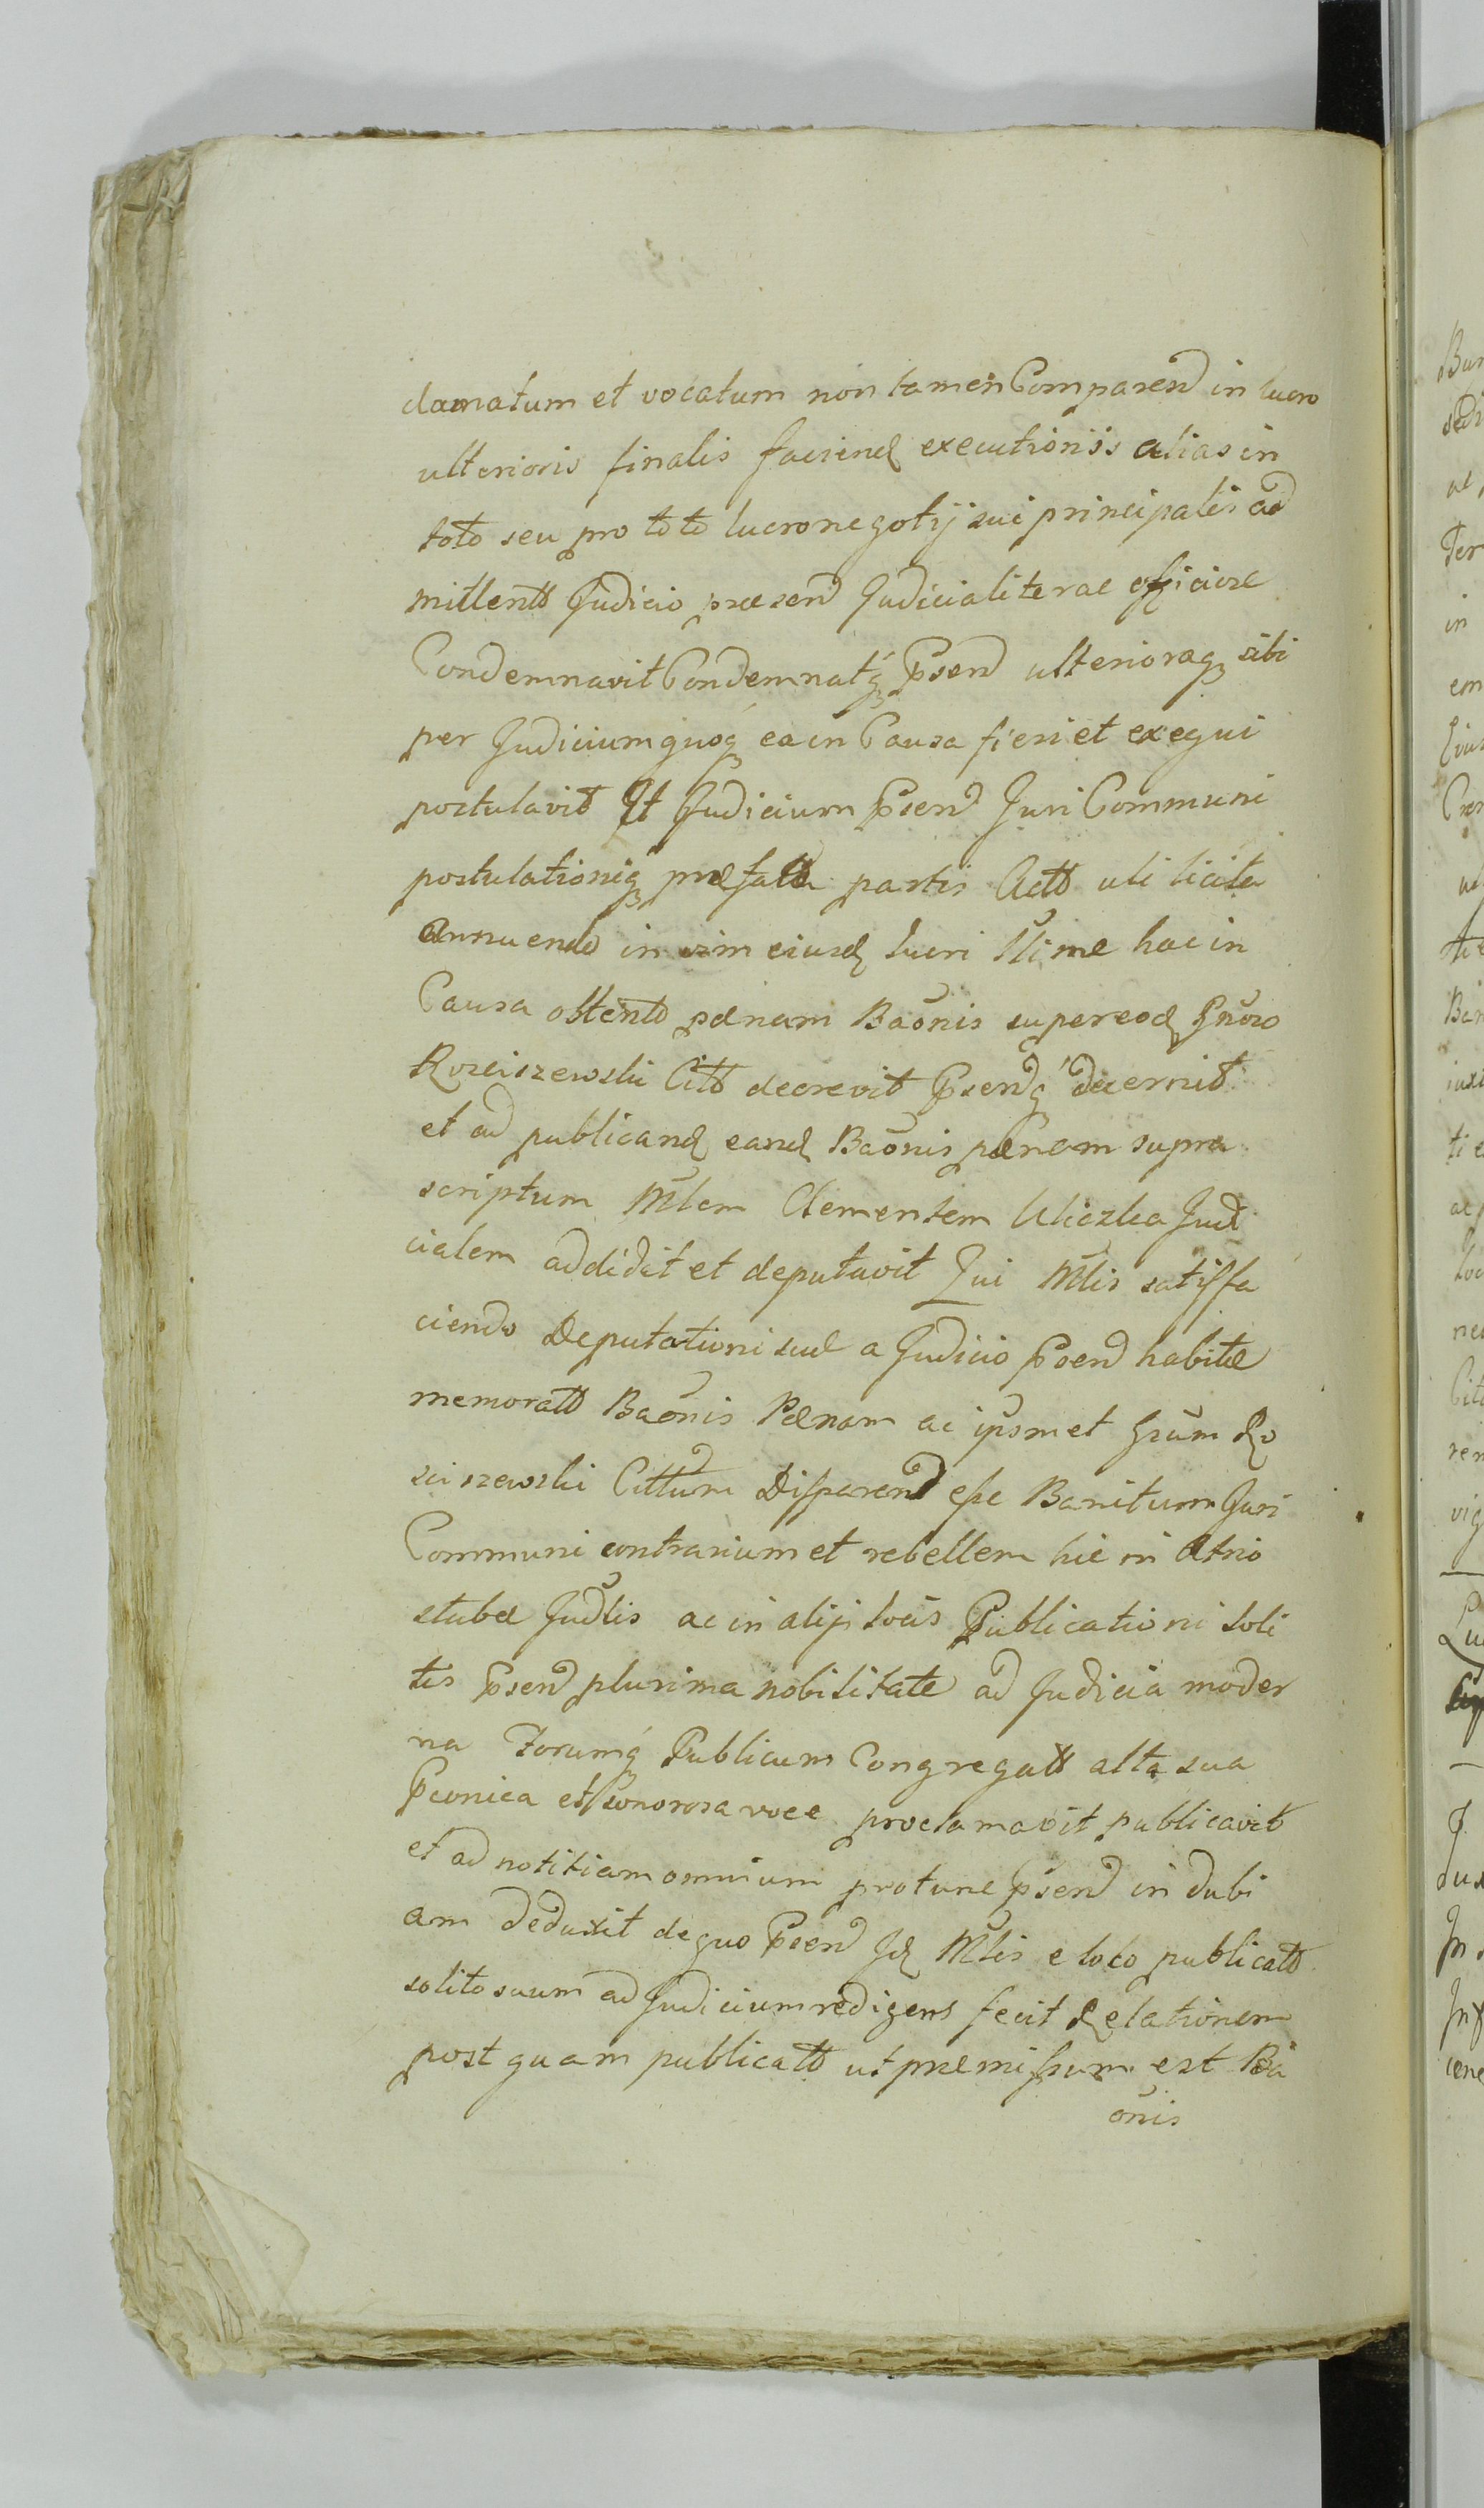 clamatum et vocatum non tamen Comparend in lucro
ulterioris finalis faciend executionis alias in
toto seu pro toto lucro negotij sui principalis ad
mittentt Judicio præsend Judicialiter ac officiose
Condemnavit Condemnatq Psend ulterioraq sibi
per Judicium quoq ea in Causa fieri et exequi
postulavit Et Judicium Psend Juri Communi
postulationiq præfatæ partis Actt uti licitæ
annuendo in vim eiusd lucri hac in
Causa obtento pænam Baōnis super eod Gnōso
Rosciszewski Citt decrevit Psendq decernit
et ad publicand eand Baōnis pænam supra
scriptum Mlem Clementem Uliczka Judi
cialem addidit et deputavit Qui Mlis satisfa
ciendo Deputationi suæ a Judicio Psend habitæ
memoratt Baōnis Pænam ac ipsmet Gsum Ro
sciszewski Cittum Disparend esse Banitum Juri
Communi contrarium et rebellem hic in Atrio
stubæ Judlis ac in alijs locis Publicationi soli
tis Psend plurima nobilitate ad Judicia moder
na Forumq Publicum Congregatt alta sua
Pconica et sonorosa voce proclamavit publicavit
et ad notitiam omnium protunc Psend in dubi
am deduxit de quo Psend Jd Mlis e loco publicatt
solito suum ad Judicium redigens fecit Relationem
post quam publicatt ut præmissum est Ba
ōnis